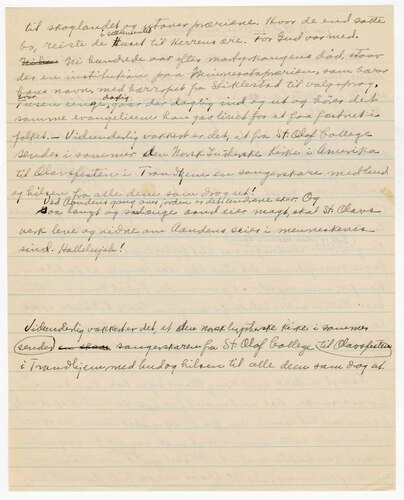 til skoglandet og utover præriene. Hvor de end satte
i sakmuntet
bo, reiste de huset til Herrens ære. For Gud var med.
Ni hundrede aar efter martyrkongens død, staar
der en institution paa Minnesotapræriens, som bærer
hans navn, med hærropet fra Stiklestad til valgsprog.
unge, gaar der daglig ind og ut og hører det
samme evangelium han gav livet for at faa fæstnet i
folket. — Vidunderlig vakkert er det, at fra St. Olaf College
sender i sommer den Norsk Lutherske Kirke i Amerika
til Olavsfesten i Trondhjem en sangerskare med bud
og hilsen fra alle dem som drog ut!
Ved Aandens gang over jorden er det underne sker Og
saa langt og saalænge aand eier magt, skal St. Olavs
verk leve og vidne om Aandens seier i menneskenes
sind. Halleluja!
Vidunderlig vakkert er det, at den norsk lutherske kirke i sommer
sender en skare sangerskaren fra St. Olaf College til Olavsfesten
i Trondhjem med bud og hilsen til alle dem som drog ut